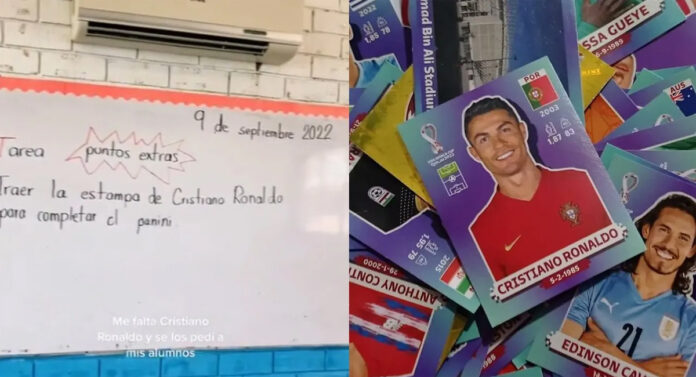 9 de septiembre 2022
Tarea
puntos extras
Traer la estampa de Cristiano Ronaldo
para completar el panini
Me falta Cristiano
Ronaldo y se los pedí a
mis alumnos
2022
1,85 78
mad Bin Ali Stadium
SSA GUEYE
6-9-1989
POR
2003
1,87 83
CRISTIANO RONALDO
5-2-1985
AUS
1,95 79
2015
29-1-2000
ANTHONY CONT
21
EDINSON CAV